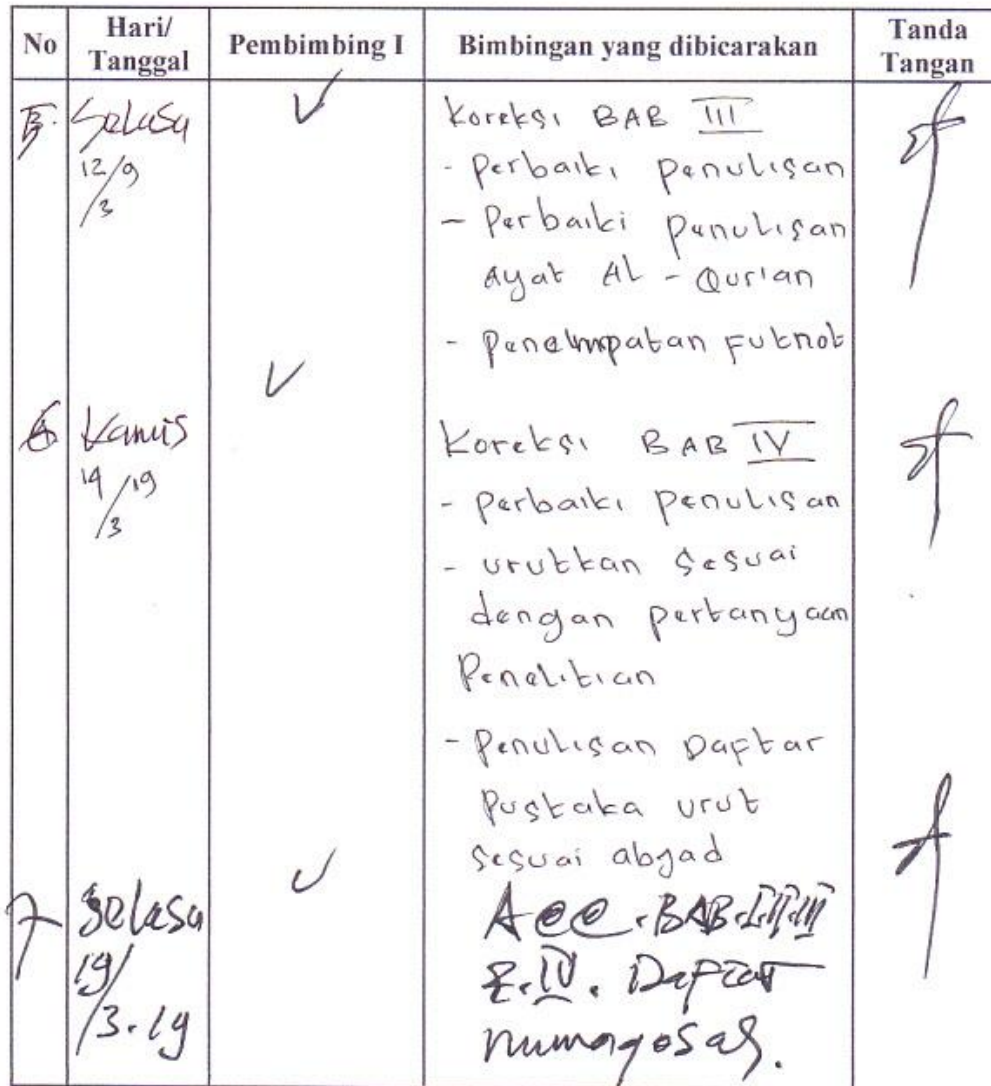 No Hari/ Tanggal Pembimbing I Bimbingan yang dibicarakan Tanda Tangan
5. Selasa ✓ Koreksi BAB III
12/3 9
- Perbaiki penulisan
- Perbaiki penulisan
ayat Al-Qur'an
- Penempatan Futnot
6 Kamis ✓ Koreksi BAB IV
14/3 19
- Perbaiki penulisan
- urutkan sesuai
dengan pertanyaan
Penelitian
- Penulisan Daftar
Pustaka urut
sesuai abjad
7 Selasa ✓ Acc. BAB. I. II. III
19/3. 19
&. IV. Daftar